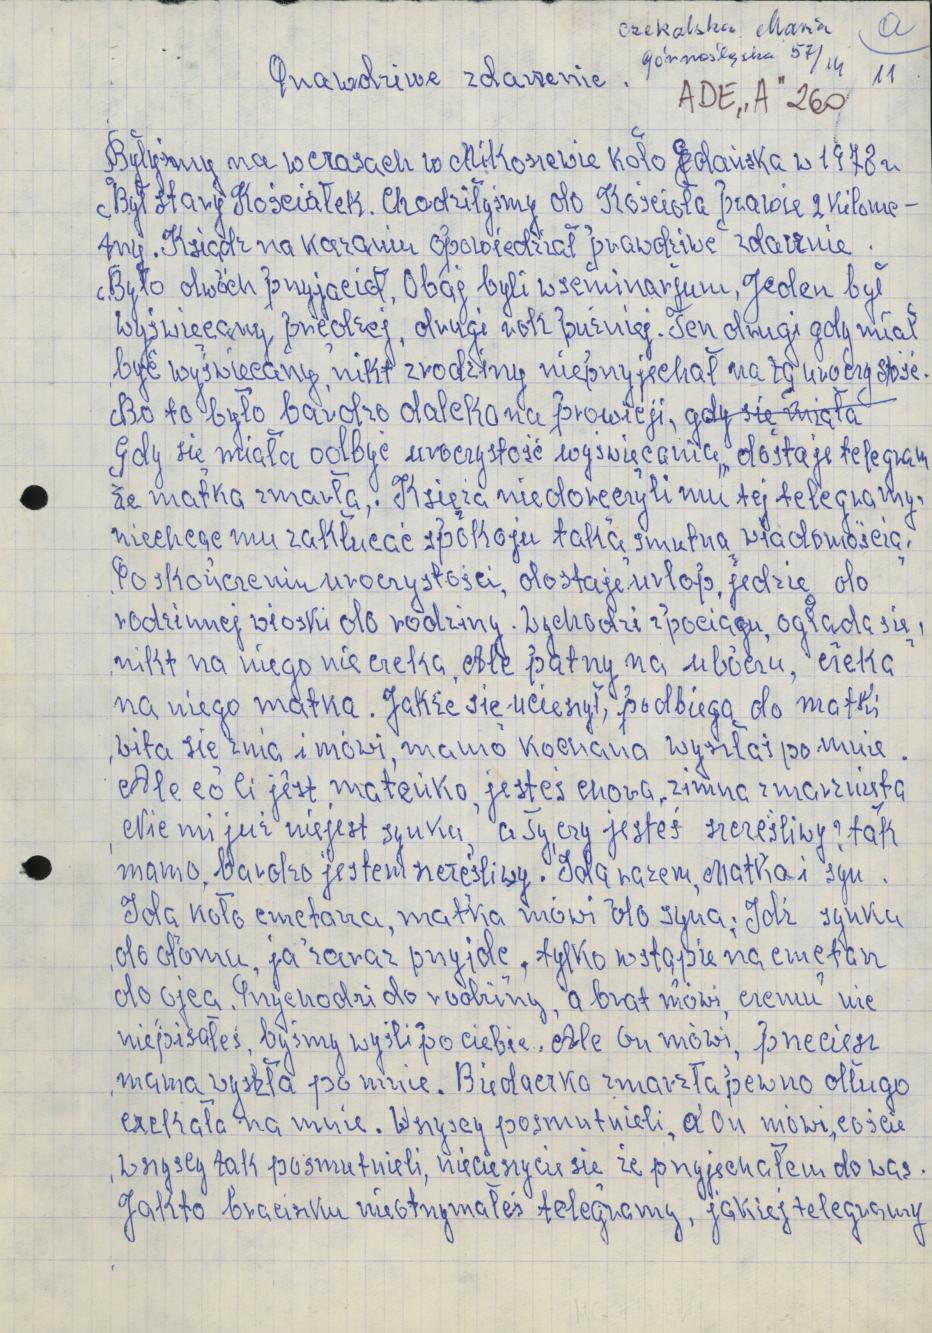 Czekalska Maria
Górnośląska 57/14
a
11
ADE „A" 260
Prawdziwe zdarzenie.
Byłyśmy na wczasach w Mikoszewie koło Gdańska w 1978 r
Był stary Kościółek. Chodziłyśmy do Kościoła prawie 2 kilome-
try. Ksiądz na kazaniu opowiedział prawdziwe zdarznie.
Było dwóch przyjaciół, Obaj byli wseminarjum, Jeden był
wyświęcany prędzej, drugi rok puźniej. Ten drugi gdy miał
być wyświęcany, nikt zrodziny nieprzyjechał na tą uroczystość.
Bo to było bardzo daleko na prowicji, gdy się miała
Gdy się miała odbyć uroczystość wyświęcania, dostaje telegram
że matka zmarła. Księża niedoręczyli mu tej telegramy,
niechcąc mu zakłucać spokoju taką smutną wiadomością.
Poskończeniu uroczystości, dostaje urlop, jedzie do
rodzinnej wioski do rodziny. Wychodzi zpociągu, ogląda się,
nikt na niego nie czeka, Ale patrzy na uboczu, czeka
na niego matka. Jakże się ucieszył, podbiega do matki
wita się znią i mówi, mamo kochana wyszłaś po mnie.
Ale co Ci jest mateńko, jesteś chora, zimna zmarznięta
Nie mi już niejest synku, a Ty czy jesteś szczęśliwy? tak
mamo, bardzo jestem szczęśliwy. Idą razem, Matka i syn.
Idą koło cmętarza, matka mówi do syna; Idź synku
do domu, ja zaraz przyjdę, tylko wstąpię na cmętarz
do ojca. Przychodzi do rodziny, a brat mówi, czemu nie
niepisałeś, byśmy wyśli po ciebie. Ale On mówi, przeciesz
mama wyszła po mnie. Biedaczka zmarzła pewno długo
czekała na mnie. Wszyscy posmutnieli, a On mówi, coście
wszyscy tak posmutnieli, niecieszycie się że przyjechałem do was.
Jakto braciszku nieotrzymałeś telegramy, jakiej telegramy